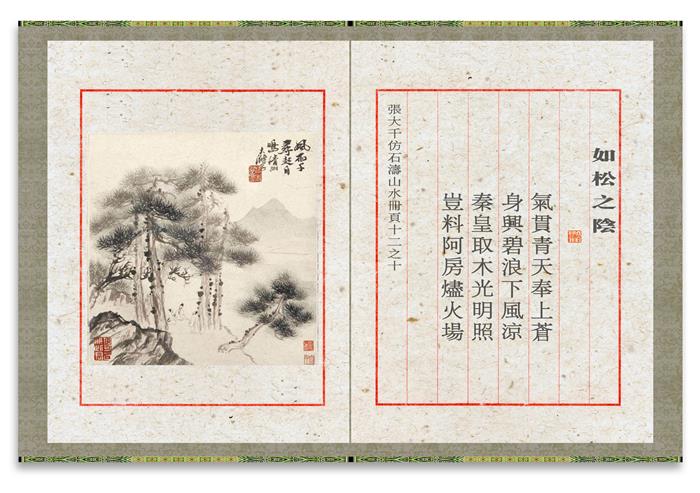 如松之陰
氣貫青天奉上蒼
身興碧浪下風涼
秦皇取木光明照
豈料阿房燼火場
張大千仿石濤山水冊頁十二之十